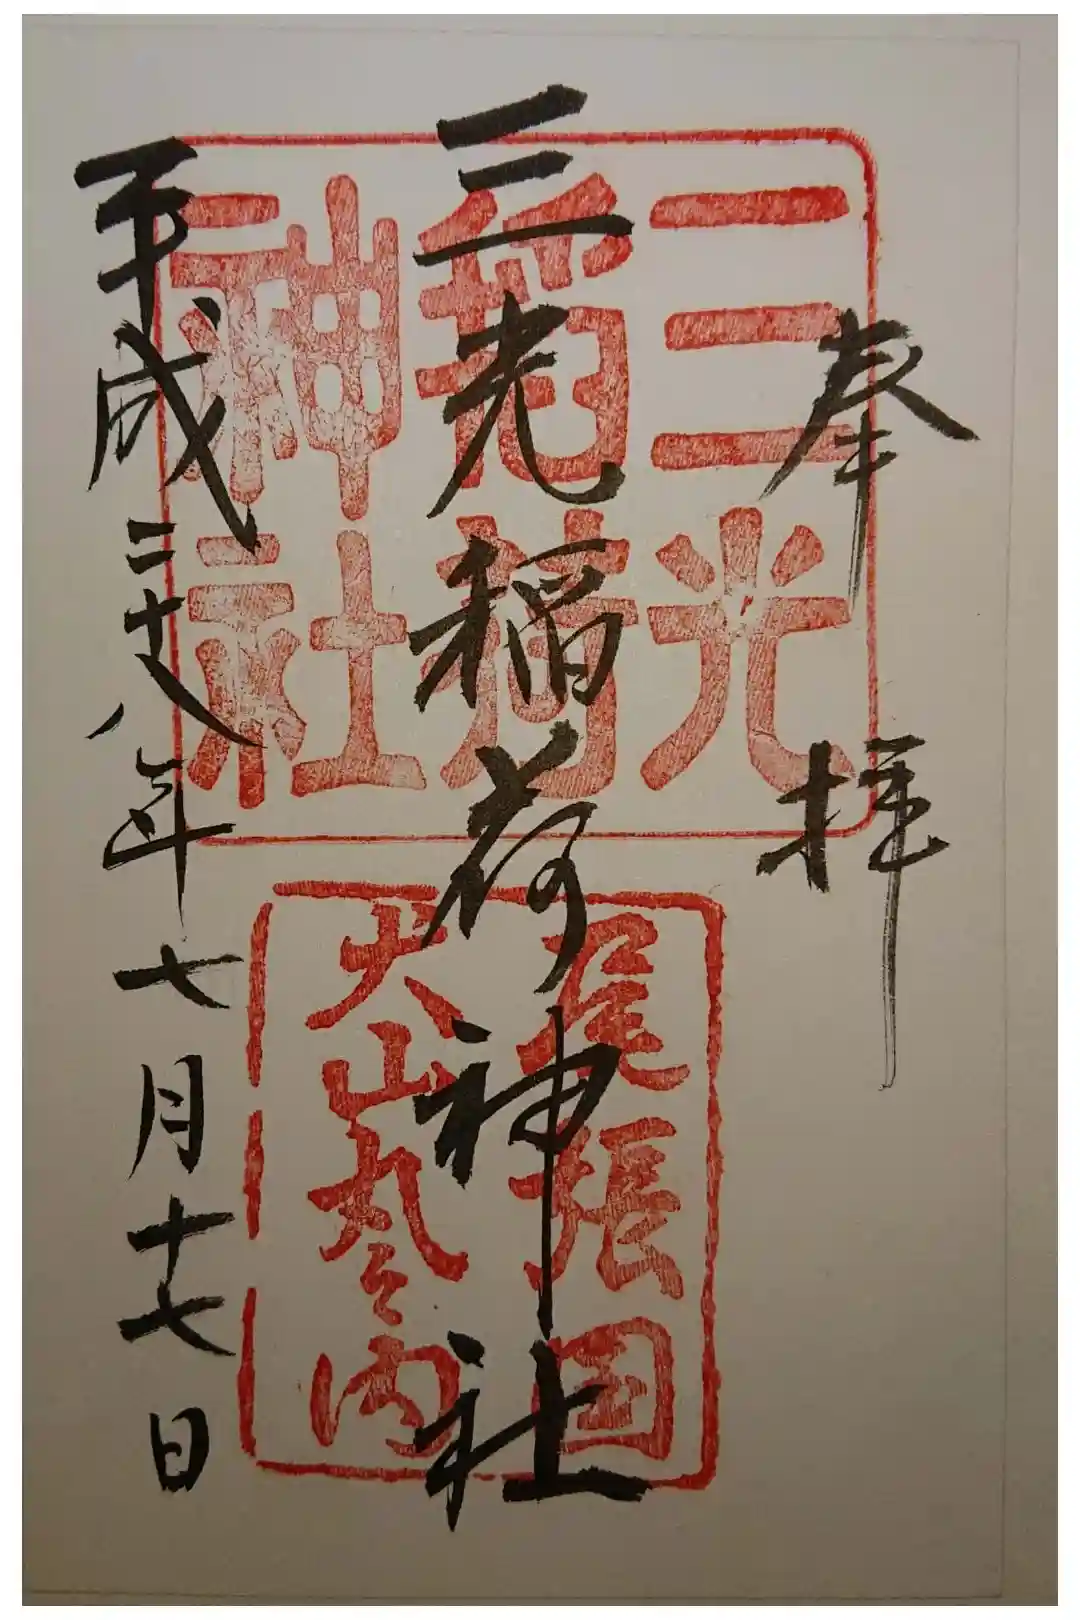 奉拝
三光稲荷神社
平成二十八年七月十七日
三光
稲荷
神社
尾張国
犬山丸之内